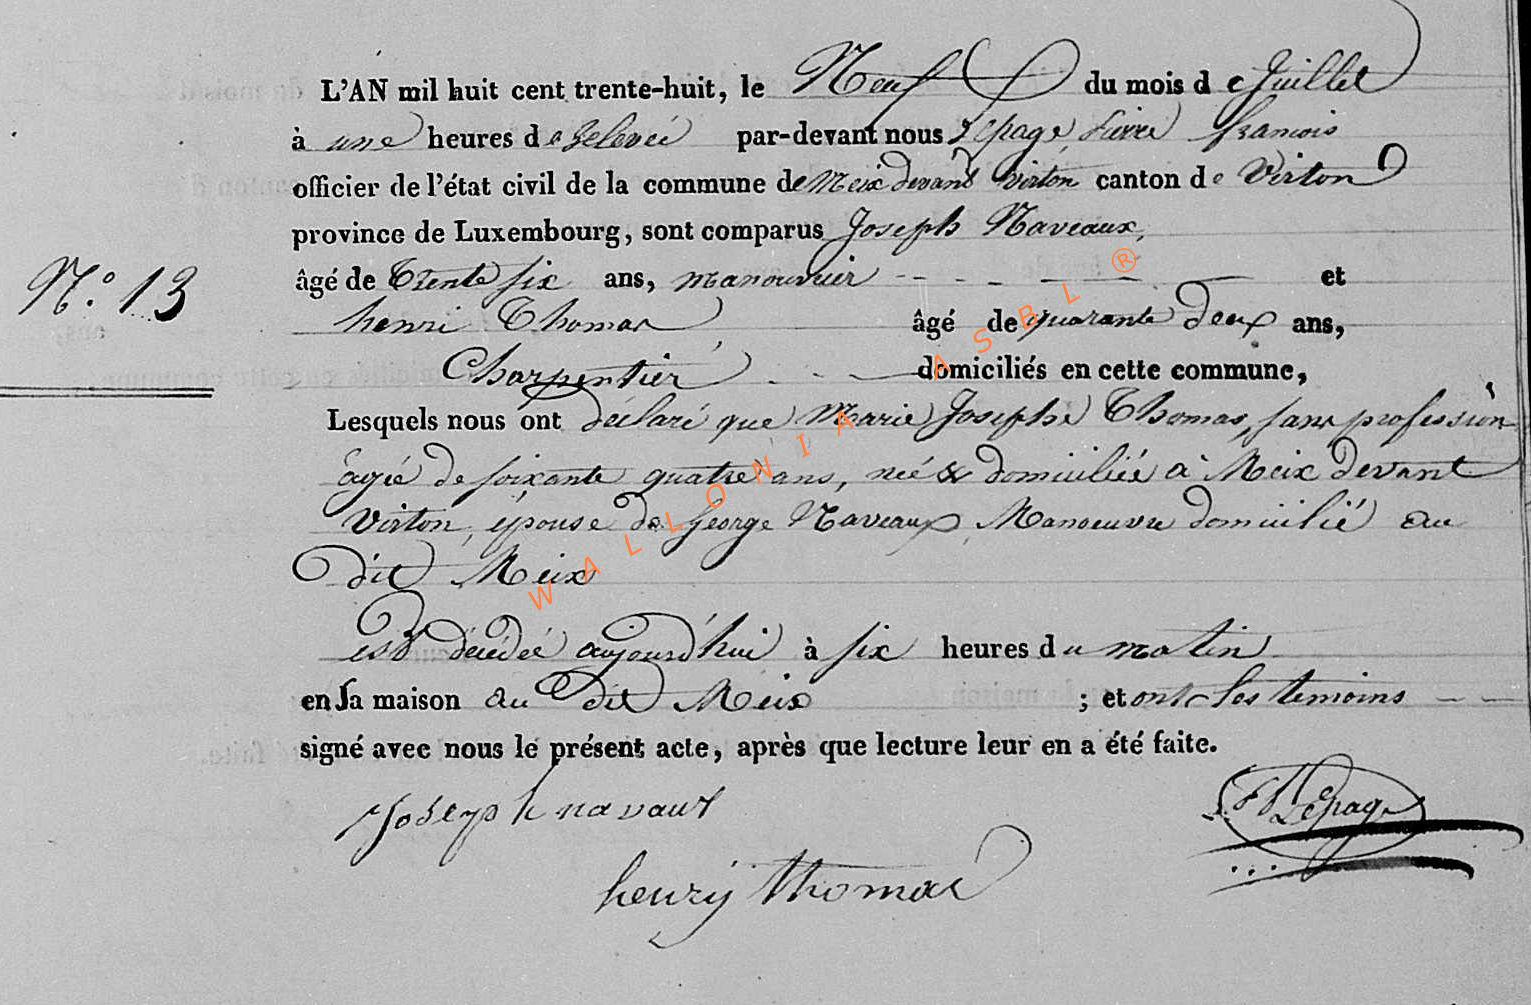 L'AN mil huit cent trente-huit, le Neuf du mois de Juillet
à une heures de Relevée par-devant nous Lepage, francois
officier de l'état civil de la commune de Meix devant Virton canton de Virton
province de Luxembourg, sont comparus Joseph Naveaux,
âgé de Trente six ans, manouvrier et
N.o 13
henri Thomas âgé de quarante deux ans,
Charpentier domiciliés en cette commune,
Lesquels nous ont déclaré que Marie Josephe Thomas, sans profession
agée de soixante quatre ans, née & domiciliée à Meix devant
Virton, épouse de George Naveaux, Manoeuvre domicilié au
dit Meix
est décédée aujourd'hui à six heures du matin
en sa maison au dit Meix ; et ont les temoins
signé avec nous le présent acte, après que lecture leur en a été faite.
Joseph navaux
Lepage
henry thomas
WALLONIA ASBL ®